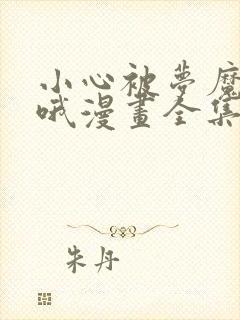 小心被夢魔
哦漫畫全集
朱丹